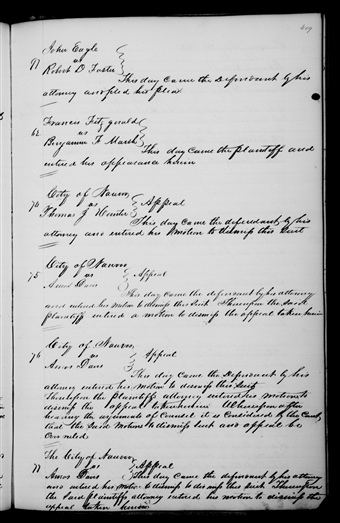 John Eagle
71 vs
Robert D Foster
This day came the Defendant by his
attorney and filed his plea
Francis Fitzgerald
62 vs
Benjamin F Marsh
This day came the Plaintiff and
entered his appearance herein
City of Nauvoo
74 vs Appeal
Thomas J Hunter
This day came the defendant by his
attorney and entered his motion to dismiss this suit
City of Nauvoo
75 vs Appeal
Amos Davis
This day came the defendant by his attorney
and entered his motion to dismiss this suit Thereupon the said
Plaintiff entered a motion to dismiss the appeal taken herein
City of Nauvoo
76 vs Appeal
Amos Davis
This day came the Defendant by his
attorney entered his motion to dismiss this suit
Thereupon the plaintiffs attorney entered his motion to
dismiss the appeal taken herein Whereupon after
hearing the arguments of Counsel it is considered by the Court,
that the said motions to dismiss suit and appeal be
overruled
The City of Nauvoo
77 vs Appeal
Amos Davis This day came the defendant by his attorney
and entered his motion to dismiss this suit Thereupon
the said plaintiffs attorney entered his motion to dismiss the
appeal taken herein